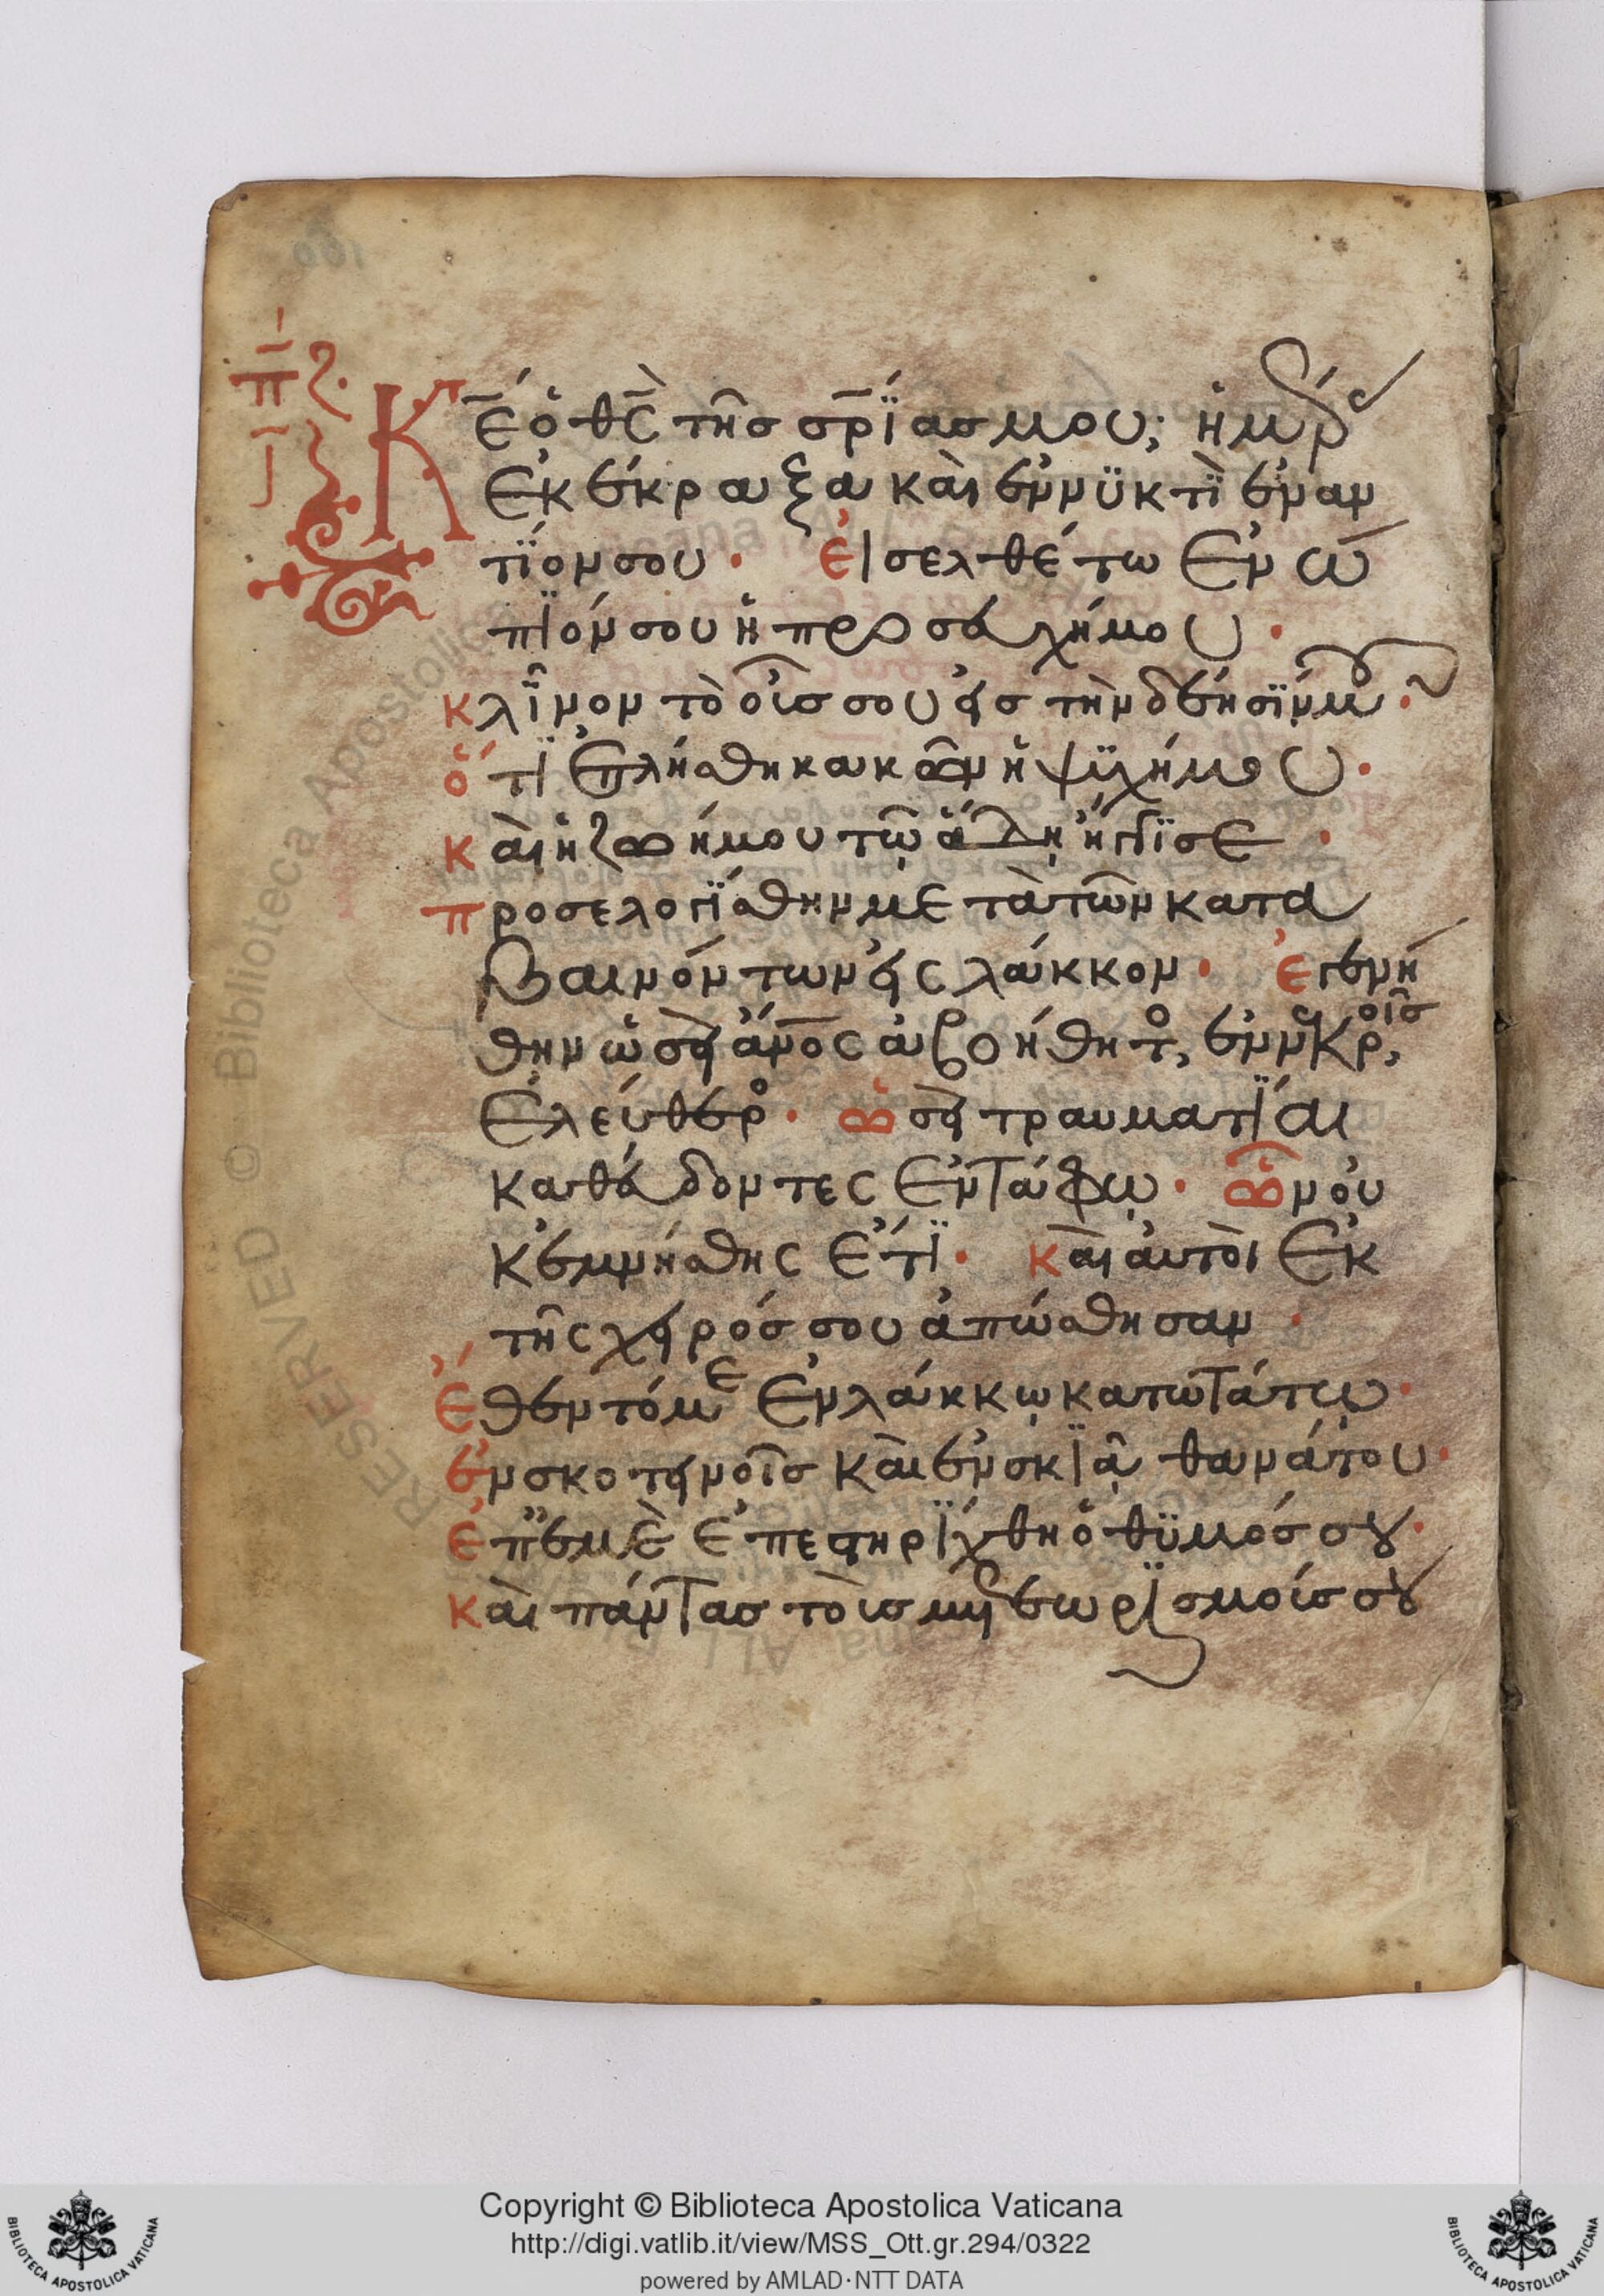 Κε̅ ὁ θς̅ τῆς σρ̅ίας μου; ἡμρ
ἐκέκραξα καὶ ἐν νϋκτὶ ἐναν
τίον σου · ἐισελθέτω ἐνώ
πϊόν σου ἡ προσευχή μου ·
κλῖνον τὸ οὖς σου εἰς τὴν δέησίν μου ·
ὅτι ἐπλήσθη κακῶν ἡ ψϋχή μου ·
καὶ ἡ ζωή μου τῷ ἅδη ἤγγϊσε ·
προσελογίσθην με τὰ τῶν κατα
βαινόντων εἰς λάκκον · ἐγενή
θην ὡσεὶ ἄνος ἀβοήθητο, ἐν νεκροῖς
ἐλεύθερο · ὡσεὶ τραυματίαι
καθεύδοντες ἐν τάφῳ · ὧν οὐ
κ ἐμνήσθης ἔτϊ · καὶ αὐτοὶ ἐκ
τῆς χειρός σου ἀπώσθησαν ·
ἔθεντό με ἐν λάκκῳ κατωτάτῳ ·
ἐν σκοτεινοῖς καὶ ἐν σκϊᾷ θανάτου ·
ἐπ ἐμὲ ἐπεστηρίχθη ὁ θϋμός σου ·
καὶ πάντας τοὺς μετεωρϊσμούς σου
RESERVED © Biblioteca Apostolica
Copyright © Biblioteca Apostolica Vaticana
http://digi.vatlib.it/view/MSS_Ott.gr.294/0322
powered by AMLAD·NTT DATA
BIBLIOTECA APOSTOLICA VATICANA
BIBLIOTECA APOSTOLICA VATICANA